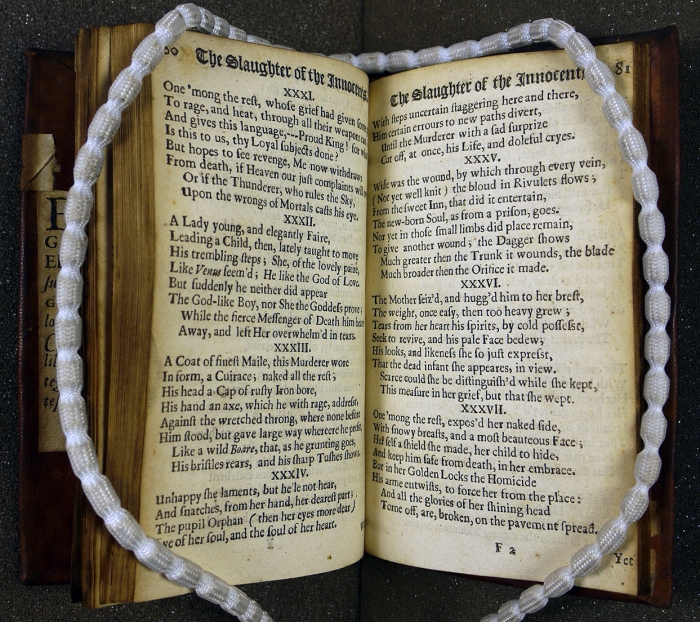 80
The Slaughter of the Innocents,
XXXI.
One 'mong the reſt, whoſe grief had given ſome
To rage, and heat, through all their weapons
And gives this language,---Proud King! for
Is this to us, thy Loyal ſubjects done?
But hopes to ſee revenge, Me now withdrawn
From death, if Heaven our juſt complaints will
Or if the Thunderer, who rules the Sky,
Upon the wrongs of Mortals caſts his eye.
XXXII.
A Lady young, and elegantly Faire,
Leading a Child, then, lately taught to move
His trembling ſteps; She, of the lovely paire,
Like Venus ſeem'd; He like the God of Love.
But ſuddenly he neither did appear
The God-like Boy, nor She the Goddeſs prove;
While the fierce Meſſenger of Death him
Away, and left Her overwhelm'd in tears.
XXXIII.
A Coat of fineſt Maile, this Murderer wore
In form, a Cuirace; naked all the reſt;
His head a Cap of ruſty Iron bore,
His hand an axe, which he with rage, addreſt,
Againſt the wretched throng, where none before
Him ſtood, but gave large way whereere he preſt,
Like a wild Boare, that, as he grunting goes,
His briſtles rears, and his ſharp Tuſhes shows.
XXXIV.
Unhappy ſhe laments, but he'le not hear,
And ſnatches, from her hand, her deareſt part;
The pupil Orphan (then her eyes more dear)
Eye of her ſoul, and the ſoul of her heart.
The Slaughter of the Innocents,
81
With ſteps uncertain ſtaggering here and there,
Him certain errours to new paths divert,
Until the Murderer with a ſad ſurprize
Cut off, at once, his Life, and doleful cryes.
XXXV.
Wide was the wound, by which through every vein,
(Not yet well knit) the bloud in Rivulets flows;
From the ſweet Inn, that did it entertain,
The new-born Soul, as from a priſon, goes.
Nor yet in thoſe ſmall limbs did place remain,
To give another wound; the Dagger ſhows
Much greater then the Trunk it wounds, the blade
Much broader then the Orifice it made.
XXXVI.
The Mother ſeiz'd, and hugg'd him to her breſt,
The weight, once eaſy, then too heavy grew;
Tears from her heart his ſpirits, by cold poſſeſst,
Seek to revive, and his pale Face bedew;
His looks, and likeneſs ſhe ſo juſt expreſst,
That the dead infant ſhe appeares, in view.
Scarce could ſhe be diſtinguiſh'd while ſhe kept,
This meaſure in her grief, but that ſhe wept.
XXXVII.
One 'mong the reſt, expos'd her naked ſide,
With ſnowy breaſts, and a moſt beauteous Face;
Her ſelf a ſhield ſhe made, her child to hide,
And keep him ſafe from death, in her embrace.
But in her Golden Locks the Homicide
His arme entwiſts, to force her from the place:
And all the glories of her ſhining head
Torne off, are, broken, on the pavement ſpread.
F 2
Yet